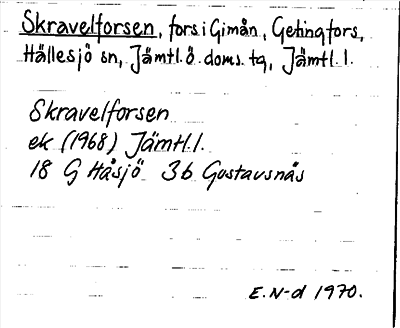 Skravelforsen, fors i Gimån, Getingfors,
Hällesjö sn, Jämtl. ö. doms. tg, Jämtl. l.
Skravelforsen
ek (1968) Jämtl.l.
18 G Håsjö 3b Gustavsnäs
E. N-d 1970.